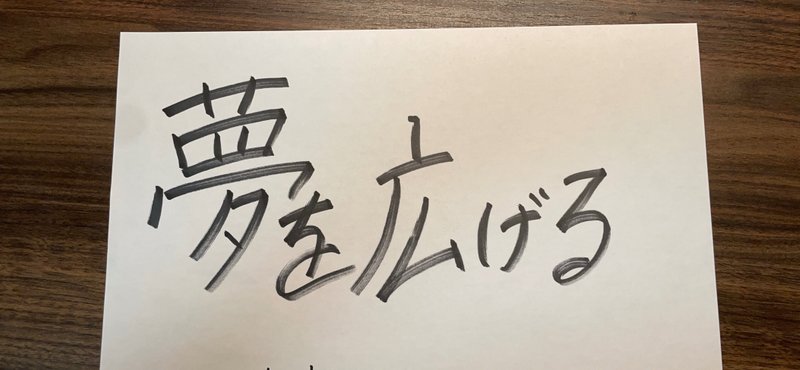 夢を広げる